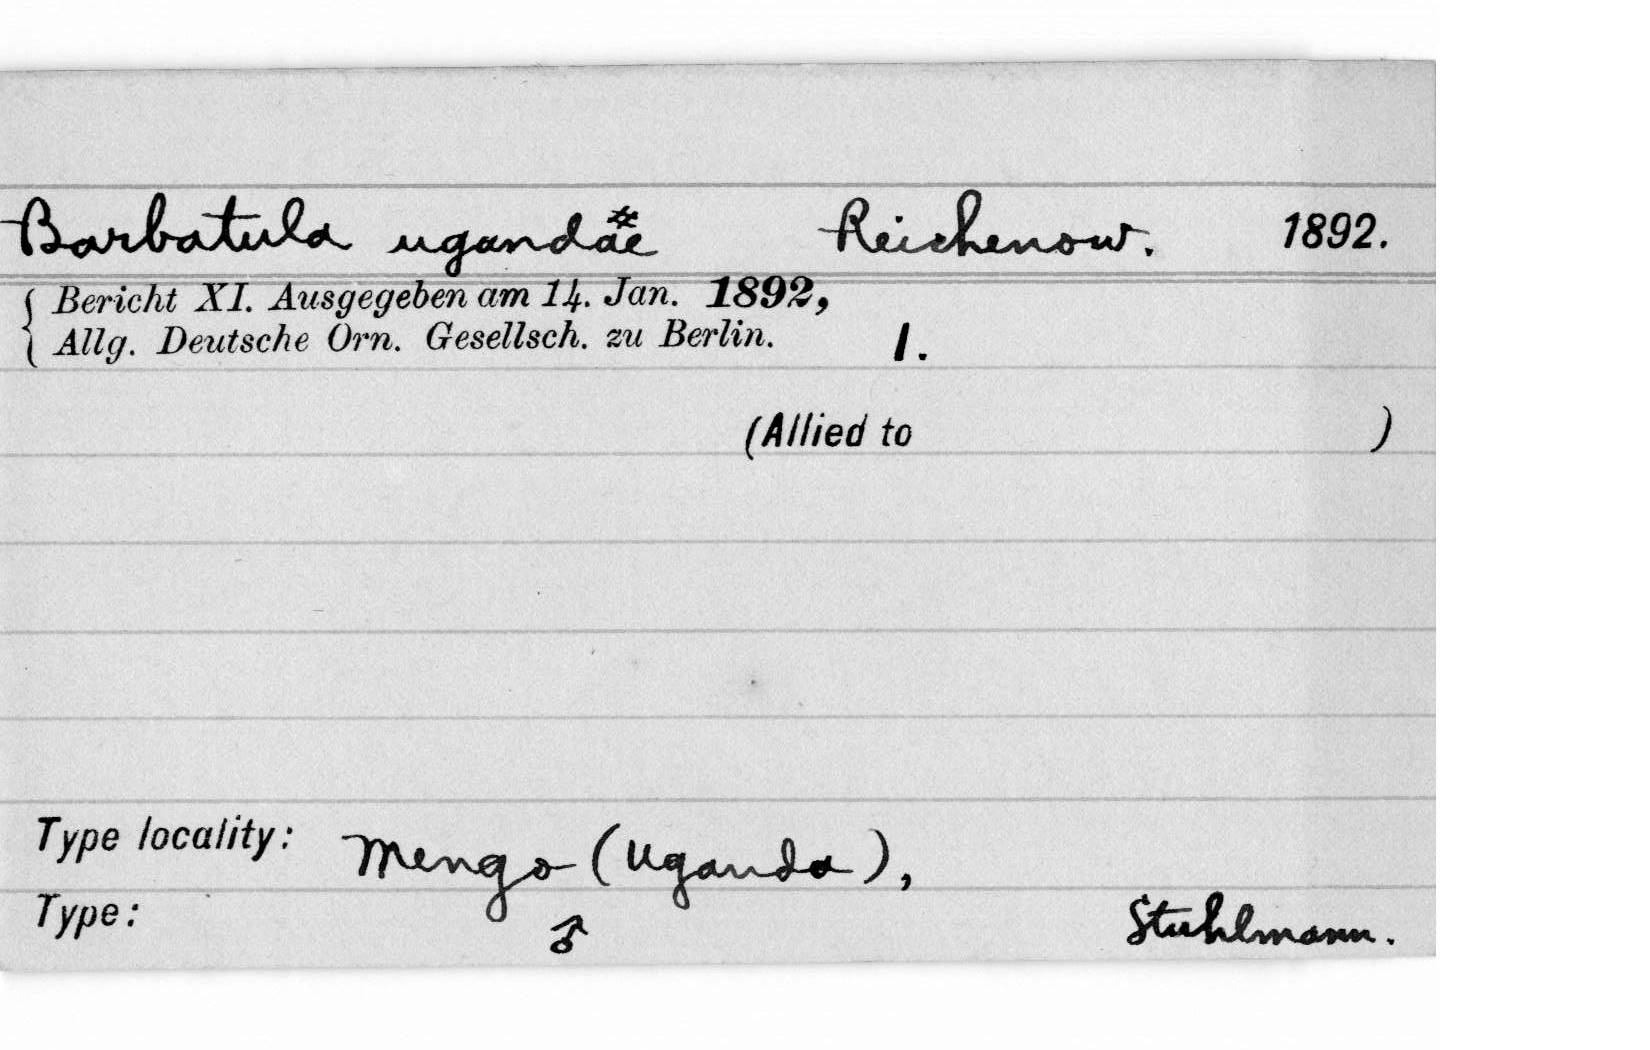 Barbatula ugandae # Reichenow. 1892.
Bericht XI. Ausgegeben am 14. Jan. 1892,
Allg. Deutsche Orn. Gesellsch. zu Berlin. 1.
(Allied to )
Type locality: Mengo (Uganda),
Type: ♂ Stuhlmann.